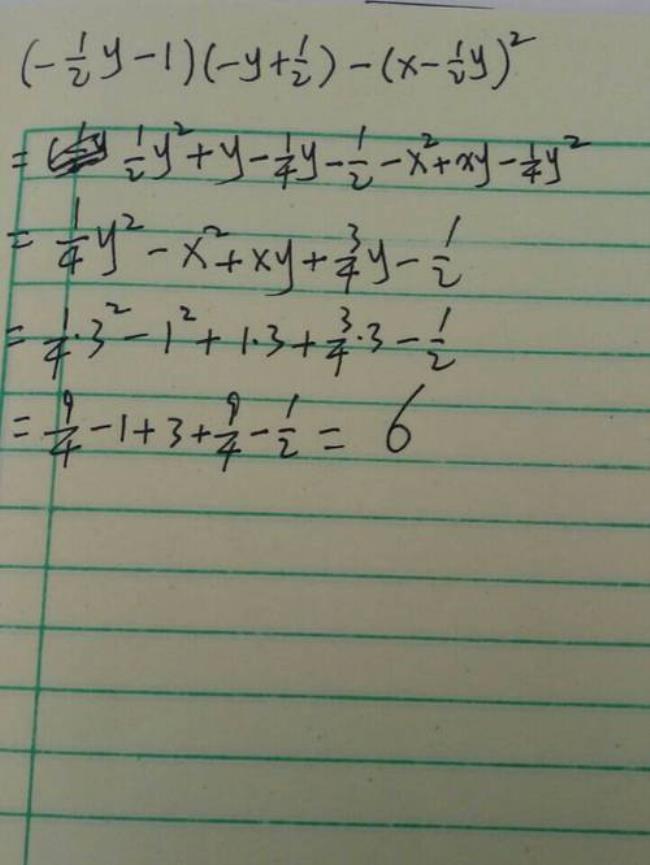 (-1/2y-1)(-y+1/2)-(x-1/2y)²
= 1/2y²+y-1/4y-1/2-x²+xy-1/4y²
= 1/4y²-x²+xy+3/4y-1/2
= 1/4·3²-1²+1·3+3/4·3-1/2
= 9/4-1+3+9/4-1/2= 6